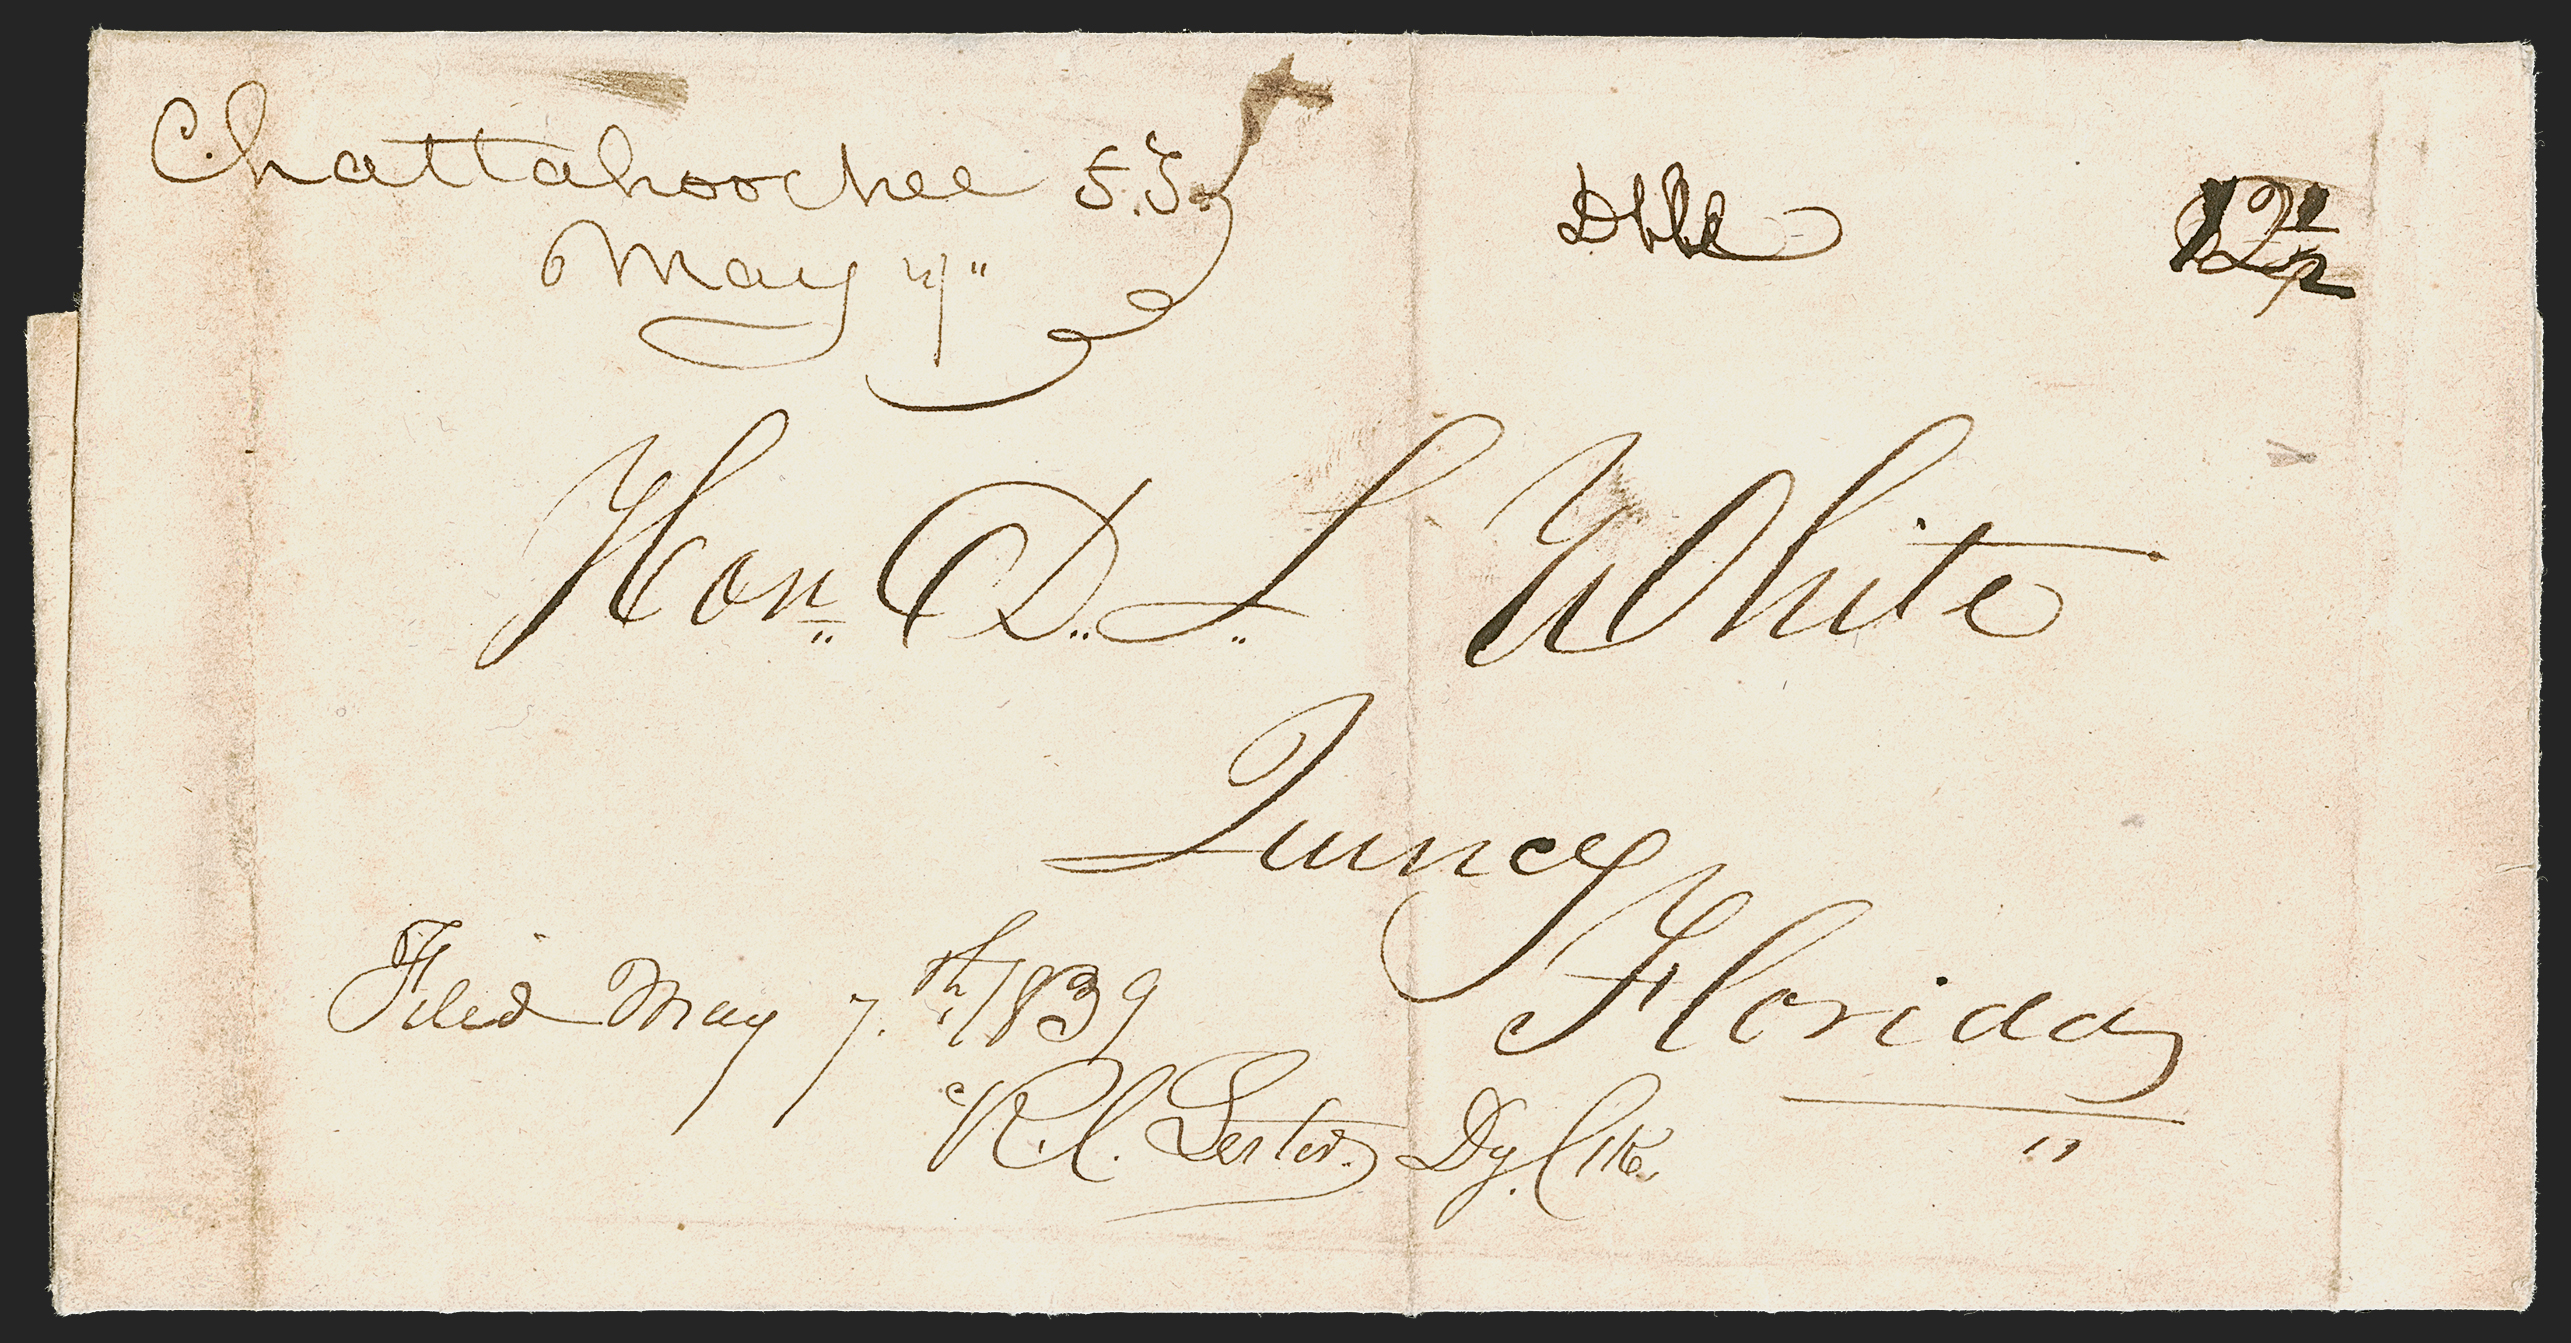 Chattahoochee F.T.
May 4"
Dble
12 1/2
Hon. D. L. White
Quincy
Florida
Filed May 7th 1839
R.C. Lester Dy. Clk.